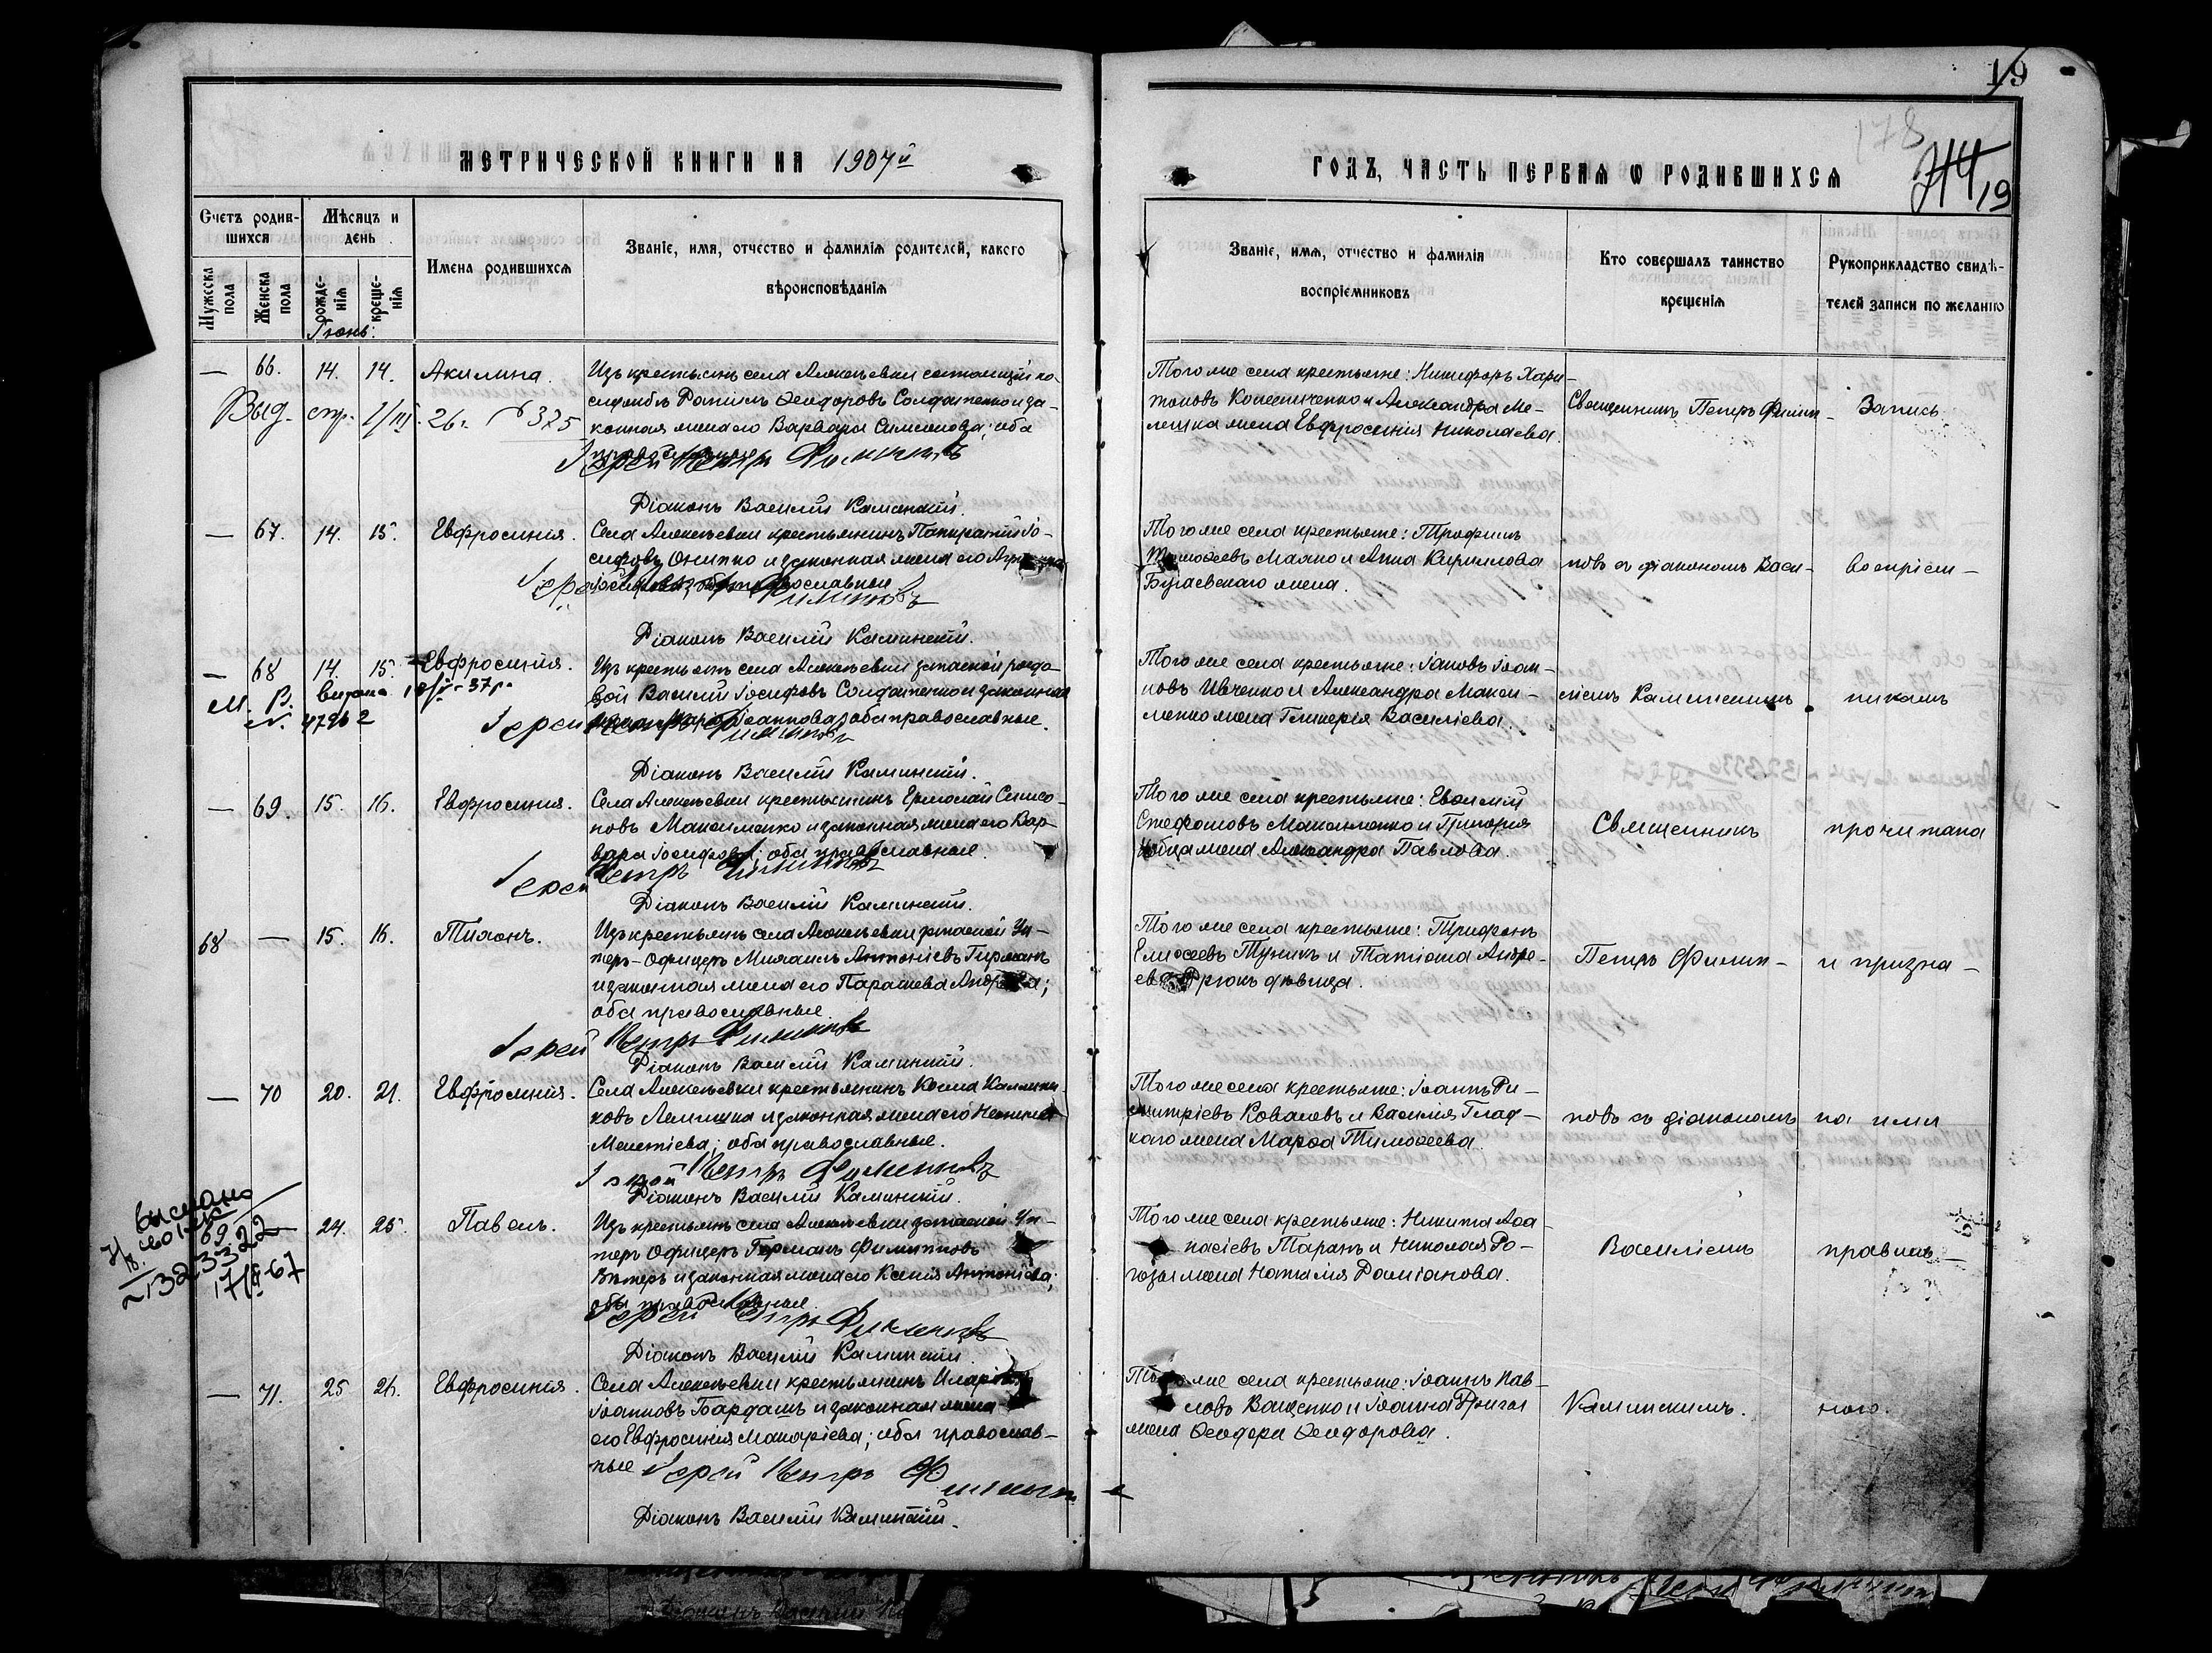 19
178
19
МЕТРИЧЕСКОЙ КНИГИ НА 1907й
ГОДЪ, ЧАСТЬ ПЕРВАЯ Ѡ РОДИВШИХСЯ
Счетъ родив-
шихся
Мѣсяцъ и
день
Имена родившихся
Званіе, имя, отчество и фамилія родителей, какого
вѣроисповѣданія
Мужеска
пола
Женска
пола
рожде-
нія
креще-
нія
Іюнь:
Званіе, имя, отчество и фамилія
воспріемниковъ
Кто совершалъ таинство
крещенія
Рукоприкладство свидѣ-
телей записи по желанію
— 66. 14. 14. Акилина.
Изъ крестьянъ села Алексѣевки состоящій на
службѣ Романъ Ѳеодоровъ Солдатенко и за-
конная жена его Варвара Симеонова; оба
православные
Выд. спр. 1/III 26. 375
Іерей Петръ Филипповъ
Діаконъ Василій Каминскій.
Того же села крестьяне: Никифоръ Хари-
тоновъ и Александра Ме-
лешка жена Евфросинія Николаева.
Священникъ Петръ Филип-
Запись
— 67. 14. 15. Евфросинія.
Села Алексѣевки крестьянинъ Панкратій Іо-
сифовъ Онипко и законная жена его
Іосифова; оба православные
Іерей Филипповъ
Діаконъ Василій Каминскій.
Того же села крестьяне: Трофимъ
Тимоѳеевъ Маляко и Анна Кириллова
Бугаевскаго жена.
повъ съ діакономъ Васи-
воспріем-
— 68 14. 15. Евфросинія.
Изъ крестьянъ села Алексѣевки запасной рядо-
вой Василій Іосифовъ Солдатенко и законная
жена Марія Іоаннова; оба православные.
М. В. видана 37 р.
N. 47262
Іерей Филипповъ
Діаконъ Василій Каминскій.
Того же села крестьяне: Іаковъ Іоан-
новъ Ивченко и Александра Макси-
менко жена Гликерія Василіева.
ліемъ Каминскимъ
никамъ
— 69. 15. 16. Евфросинія.
Села Алексѣевки крестьянинъ Ермолай Симео-
новъ Максименко и законная жена его Вар-
вара Іосифова; оба православные.
Іерей Петръ Филипповъ
Діаконъ Василій Каминскій.
Того же села крестьяне: Евѳимій
Стефановъ Максименко и Григорія
жена Александра Павлова.
Священникъ
прочитана
68 — 15. 16. Тихонъ.
Изъ крестьянъ села Алексѣевки запасной Ун-
теръ-Офицеръ Михаилъ Антоніевъ Гирманъ
и законная жена его Параскева Андреева;
оба православные.
Іерей Петръ Филипповъ
Діаконъ Василій Каминскій.
Того же села крестьяне: Трифонъ
Елисеевъ Тупикъ и Татіана Андре-
ева Дрюкъ дѣвица.
Петръ Филип-
и призна-
— 70 20. 21. Евфросинія.
Села Алексѣевки крестьянинъ Косма Каллини-
ковъ Лемишка и законная жена его
Мелетіева; оба православные.
Іерей Петръ Филипповъ
Діаконъ Василій Каминскій.
Того же села крестьяне: Іоаннъ Ди-
митріевъ Ковалевъ и Василія Глад-
каго жена Марѳа Тимоѳеева.
повъ съ діакономъ
на ими
69. 24. 25. Павелъ.
Изъ крестьянъ села Алексѣевки запасной Ун-
теръ Офицеръ Германъ Филипповъ
Винтеръ и законная жена его Ксенія Антоніева;
оба православные.
Іерей Петръ Филипповъ
Діаконъ Василій Каминскій.
Того же села крестьяне: Никита Аѳа-
насіевъ Таранъ и Николая Ро-
гозы жена Наталія Даміанова.
Василіемъ
правиль-
— 71. 25 26. Евфросинія.
Села Алексѣевки крестьянинъ Иларіонъ
Іоанновъ Бардашъ и законная жена
его Евфросинія Макаріева; оба православ-
ные Іерей Петръ Филиппов
Діаконъ Василій Каминскій.
Того же села крестьяне: Іоаннъ Пав-
ловъ Ващенко и Іоанна Дригал
жена Ѳеодора Ѳеодорова.
Каминскимъ.
ною.